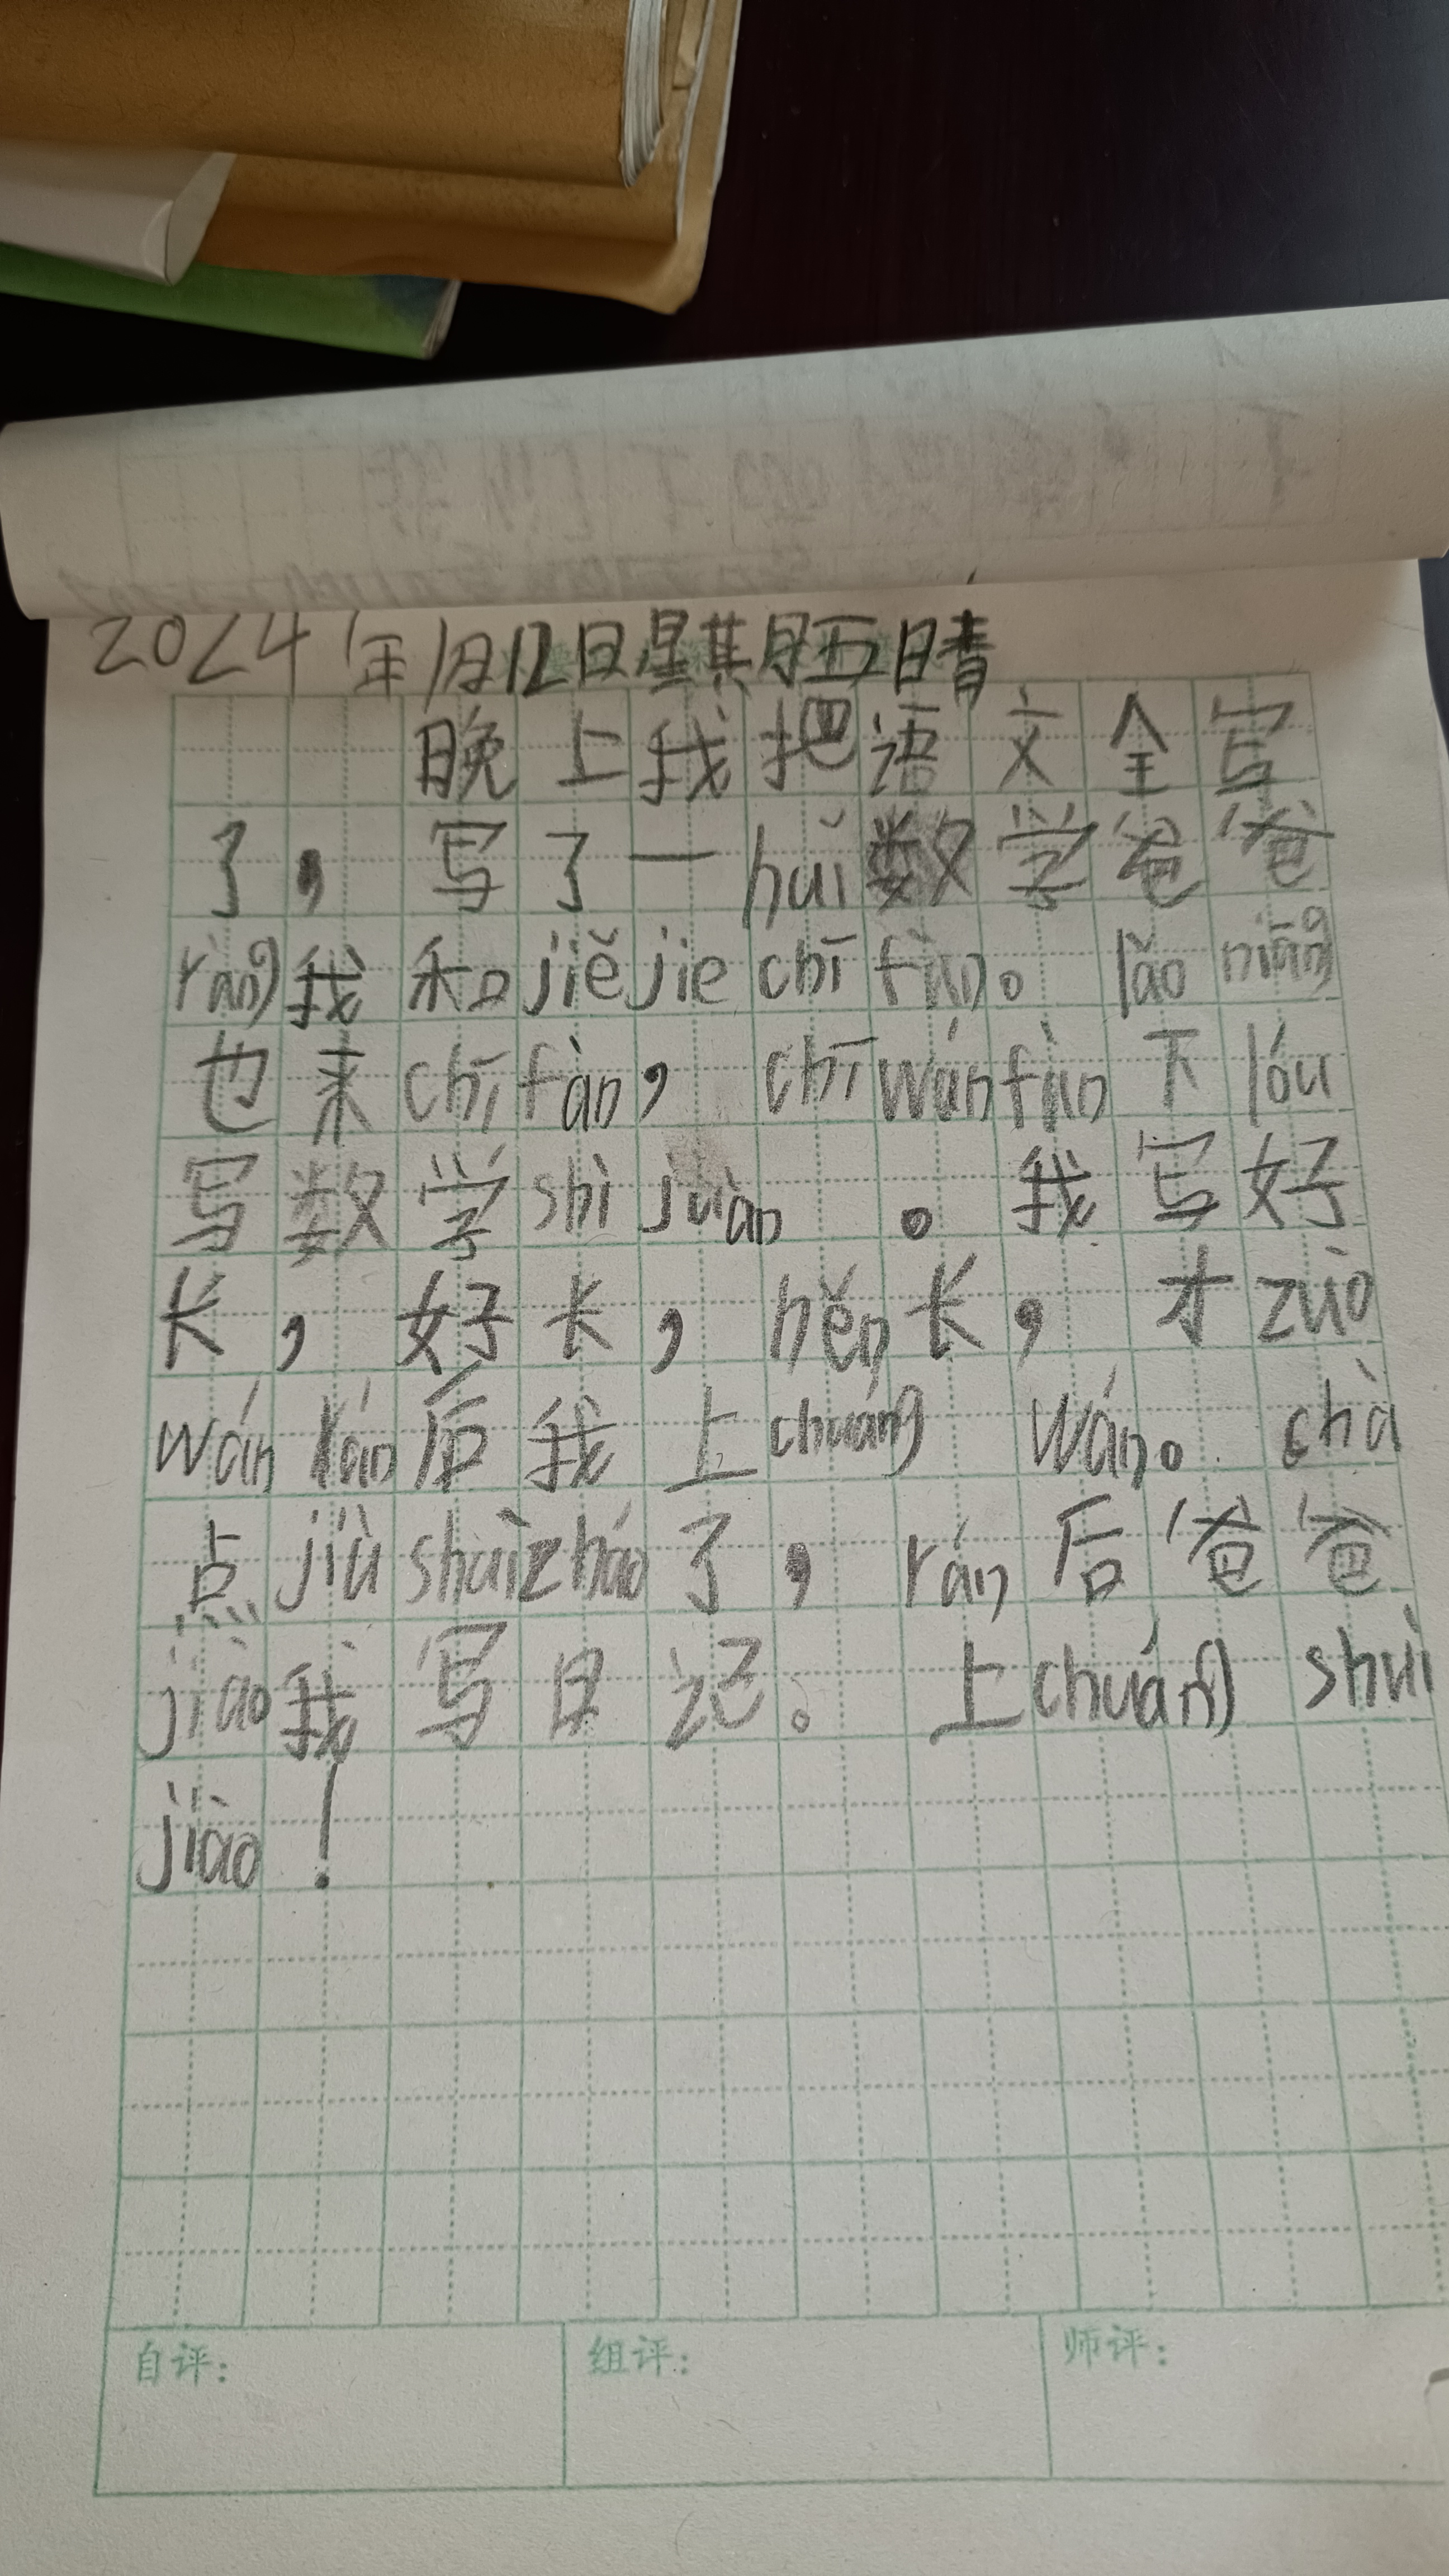 2024年1月12日星期五日晴
晚上我把语文全写
了，写了一huǐ数学爸爸
ràng我和jiějiechīfàn。lǎo niāng
也来chīfàn，chīwánfàn下lóu
写数学shìjuàn。我写好
长，好长，hěn长，才zuò
wán rán后我上chuáng wán。chà
点jiùshuìzháo了，rán后爸爸
jiào我写日记。上chuáng shuì
jiào！
自评： 组评： 师评：